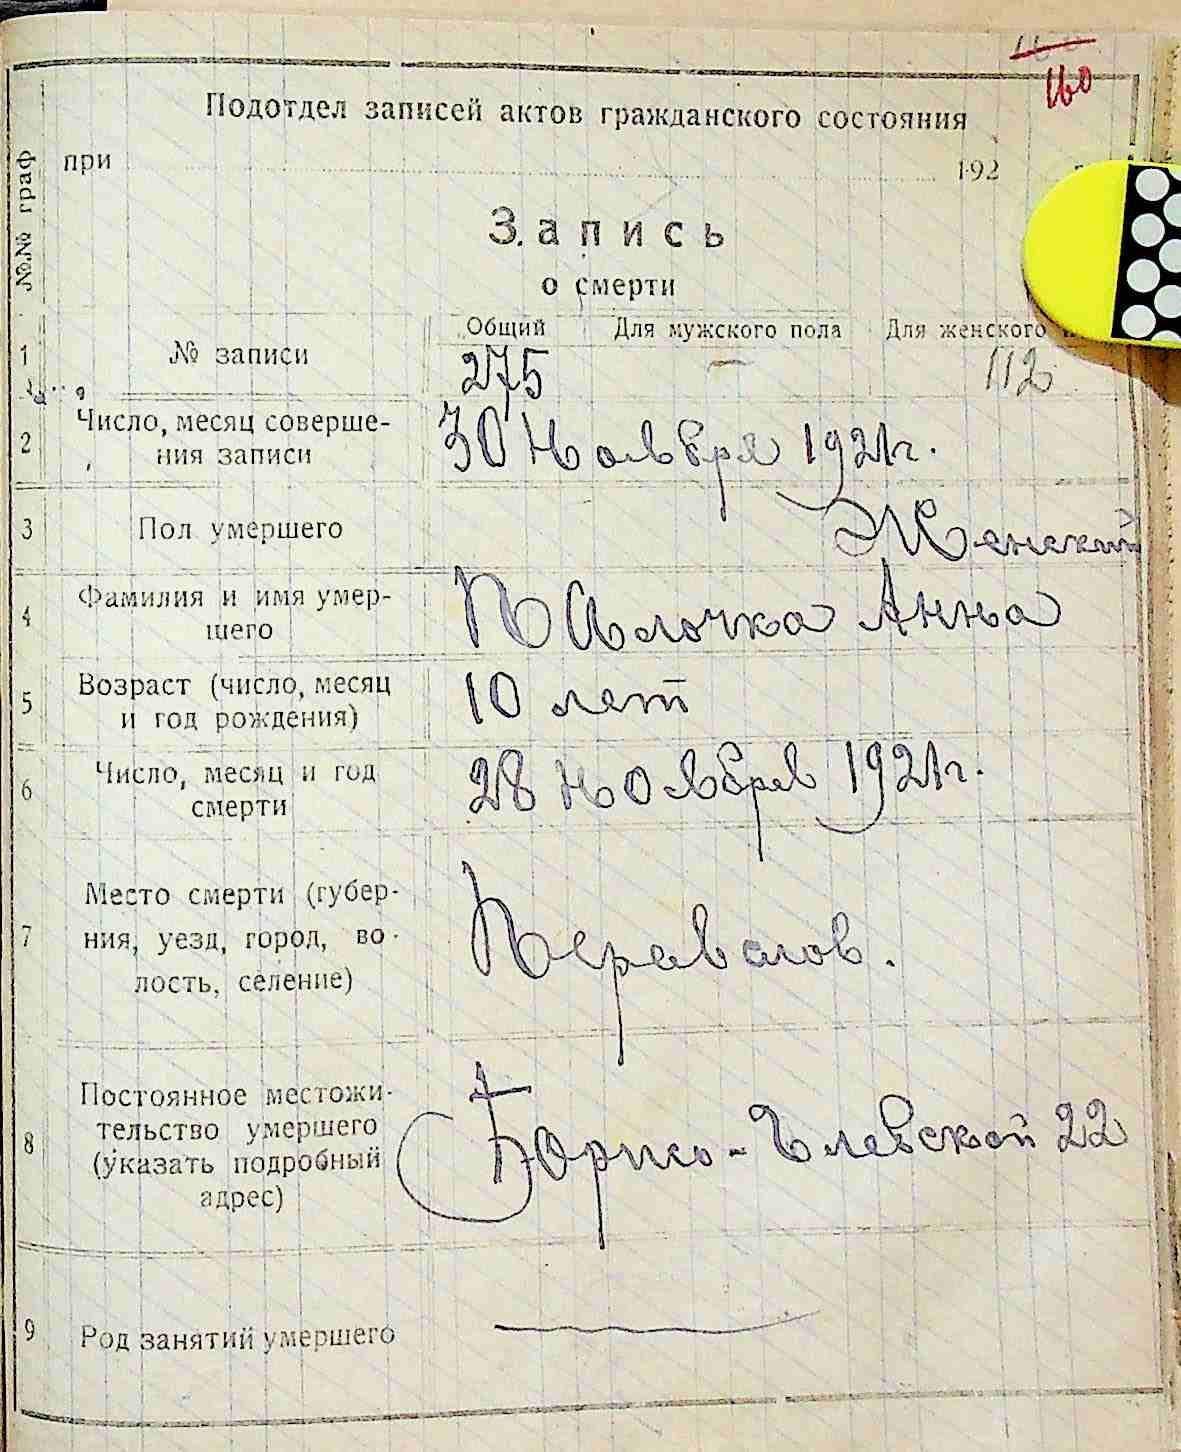 160
Подотдел записей актов гражданского состояния
при 192
№№ граф
Запись
о смерти
Общий Для мужского пола Для женского
1 № записи 275 — 112
2 Число, месяц соверше-
ния записи
30 Ноября 1921г.
3 Пол умершего Женский
4 Фамилия и имя умер-
шего
Павлочка Анна
5 Возраст (число, месяц
и год рождения)
10 лет
6 Число, месяц и год
смерти
28 Ноября 1921г.
7 Место смерти (губер-
ния, уезд, город, во-
лость, селение)
Перевалов.
8 Постоянное местожи-
тельство умершего
(указать подробный
адрес)
Борисо-Глевской 22
9 Род занятий умершего —